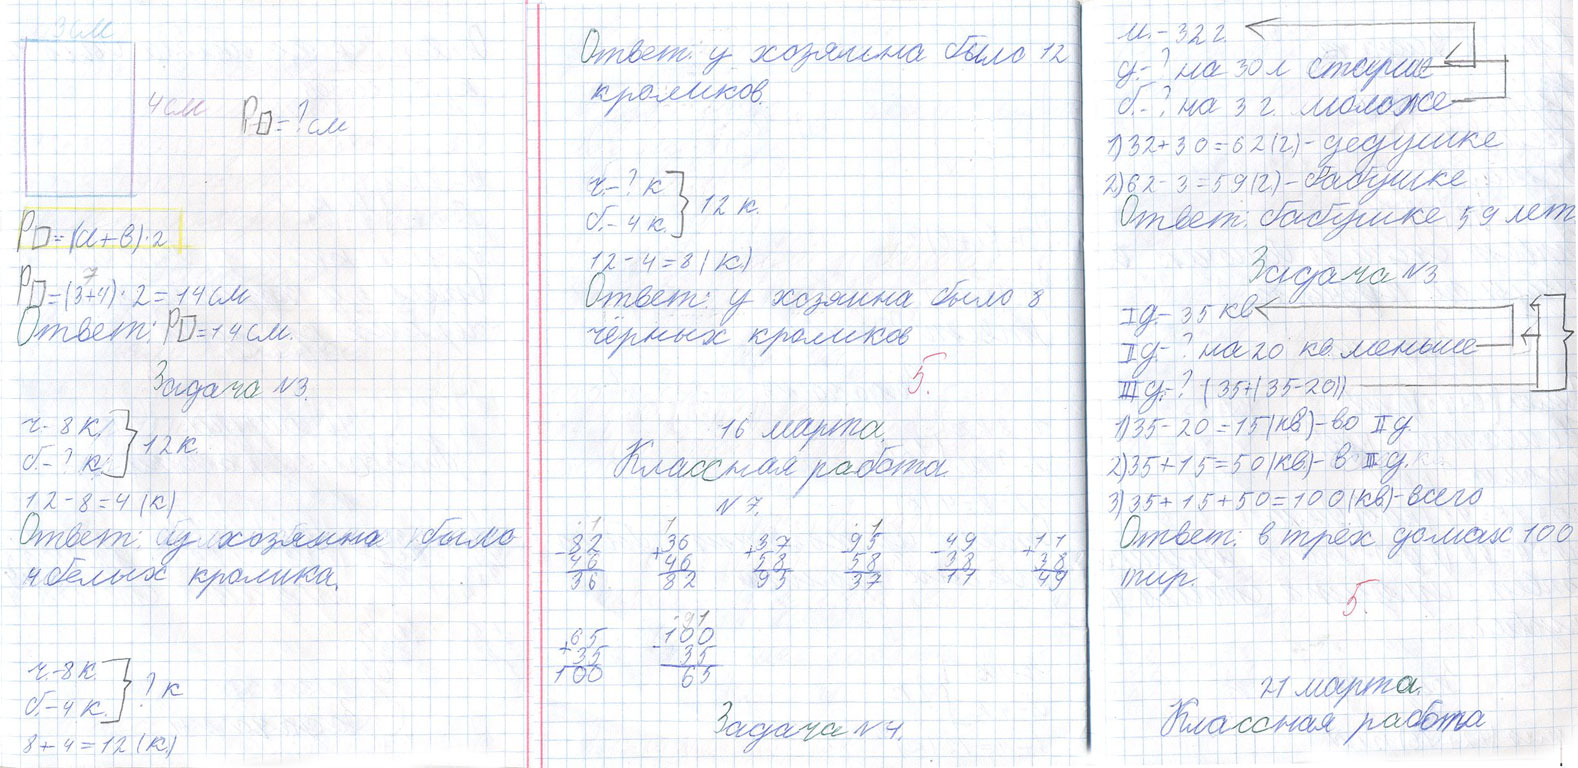 3 см
4 см
P□=? см
P□=(а+в)·2
7
P□=(3+4)·2=14 см
Ответ: P□=14 см.
Задача №3.
ч.- 8 к.
б.- ? к.
12 к.
12-8=4 (к)
Ответ: у хозяина было
4 белых кролика.
ч.-8 к.
б.-4 к.
? к
8+4=12 (к.)
Ответ: у хозяина было 12
кроликов.
ч.-? к
б.-4 к.
12 к.
12-4=8 (к)
Ответ: у хозяина было 8
чёрных кроликов
5.
16 марта.
Классная работа.
№7.
-82 +36 +37 -95 -49 +11
46 46 58 58 38 38
36 82 95 37 11 49
+65 -100
35 35
100 65
Задача №4.
м.-32 г.
д.-? на 30 л старше
б.-? на 3 г. моложе
1) 32+30=62 (г.)- дедушке
2) 62-3=59 (г.)- бабушке.
Ответ: бабушке 59 лет
Задача №3
I д.- 35 кв
II д.- ? на 20 кв. меньше
III д.- ? (35+(35-20))
1) 35-20=15 (кв.)-во II д.
2) 35+15=50 (кв.)-в III д.
3) 35+15+50=100 (кв)-всего
Ответ: в трёх домах 100
5.
21 марта.
Классная работа